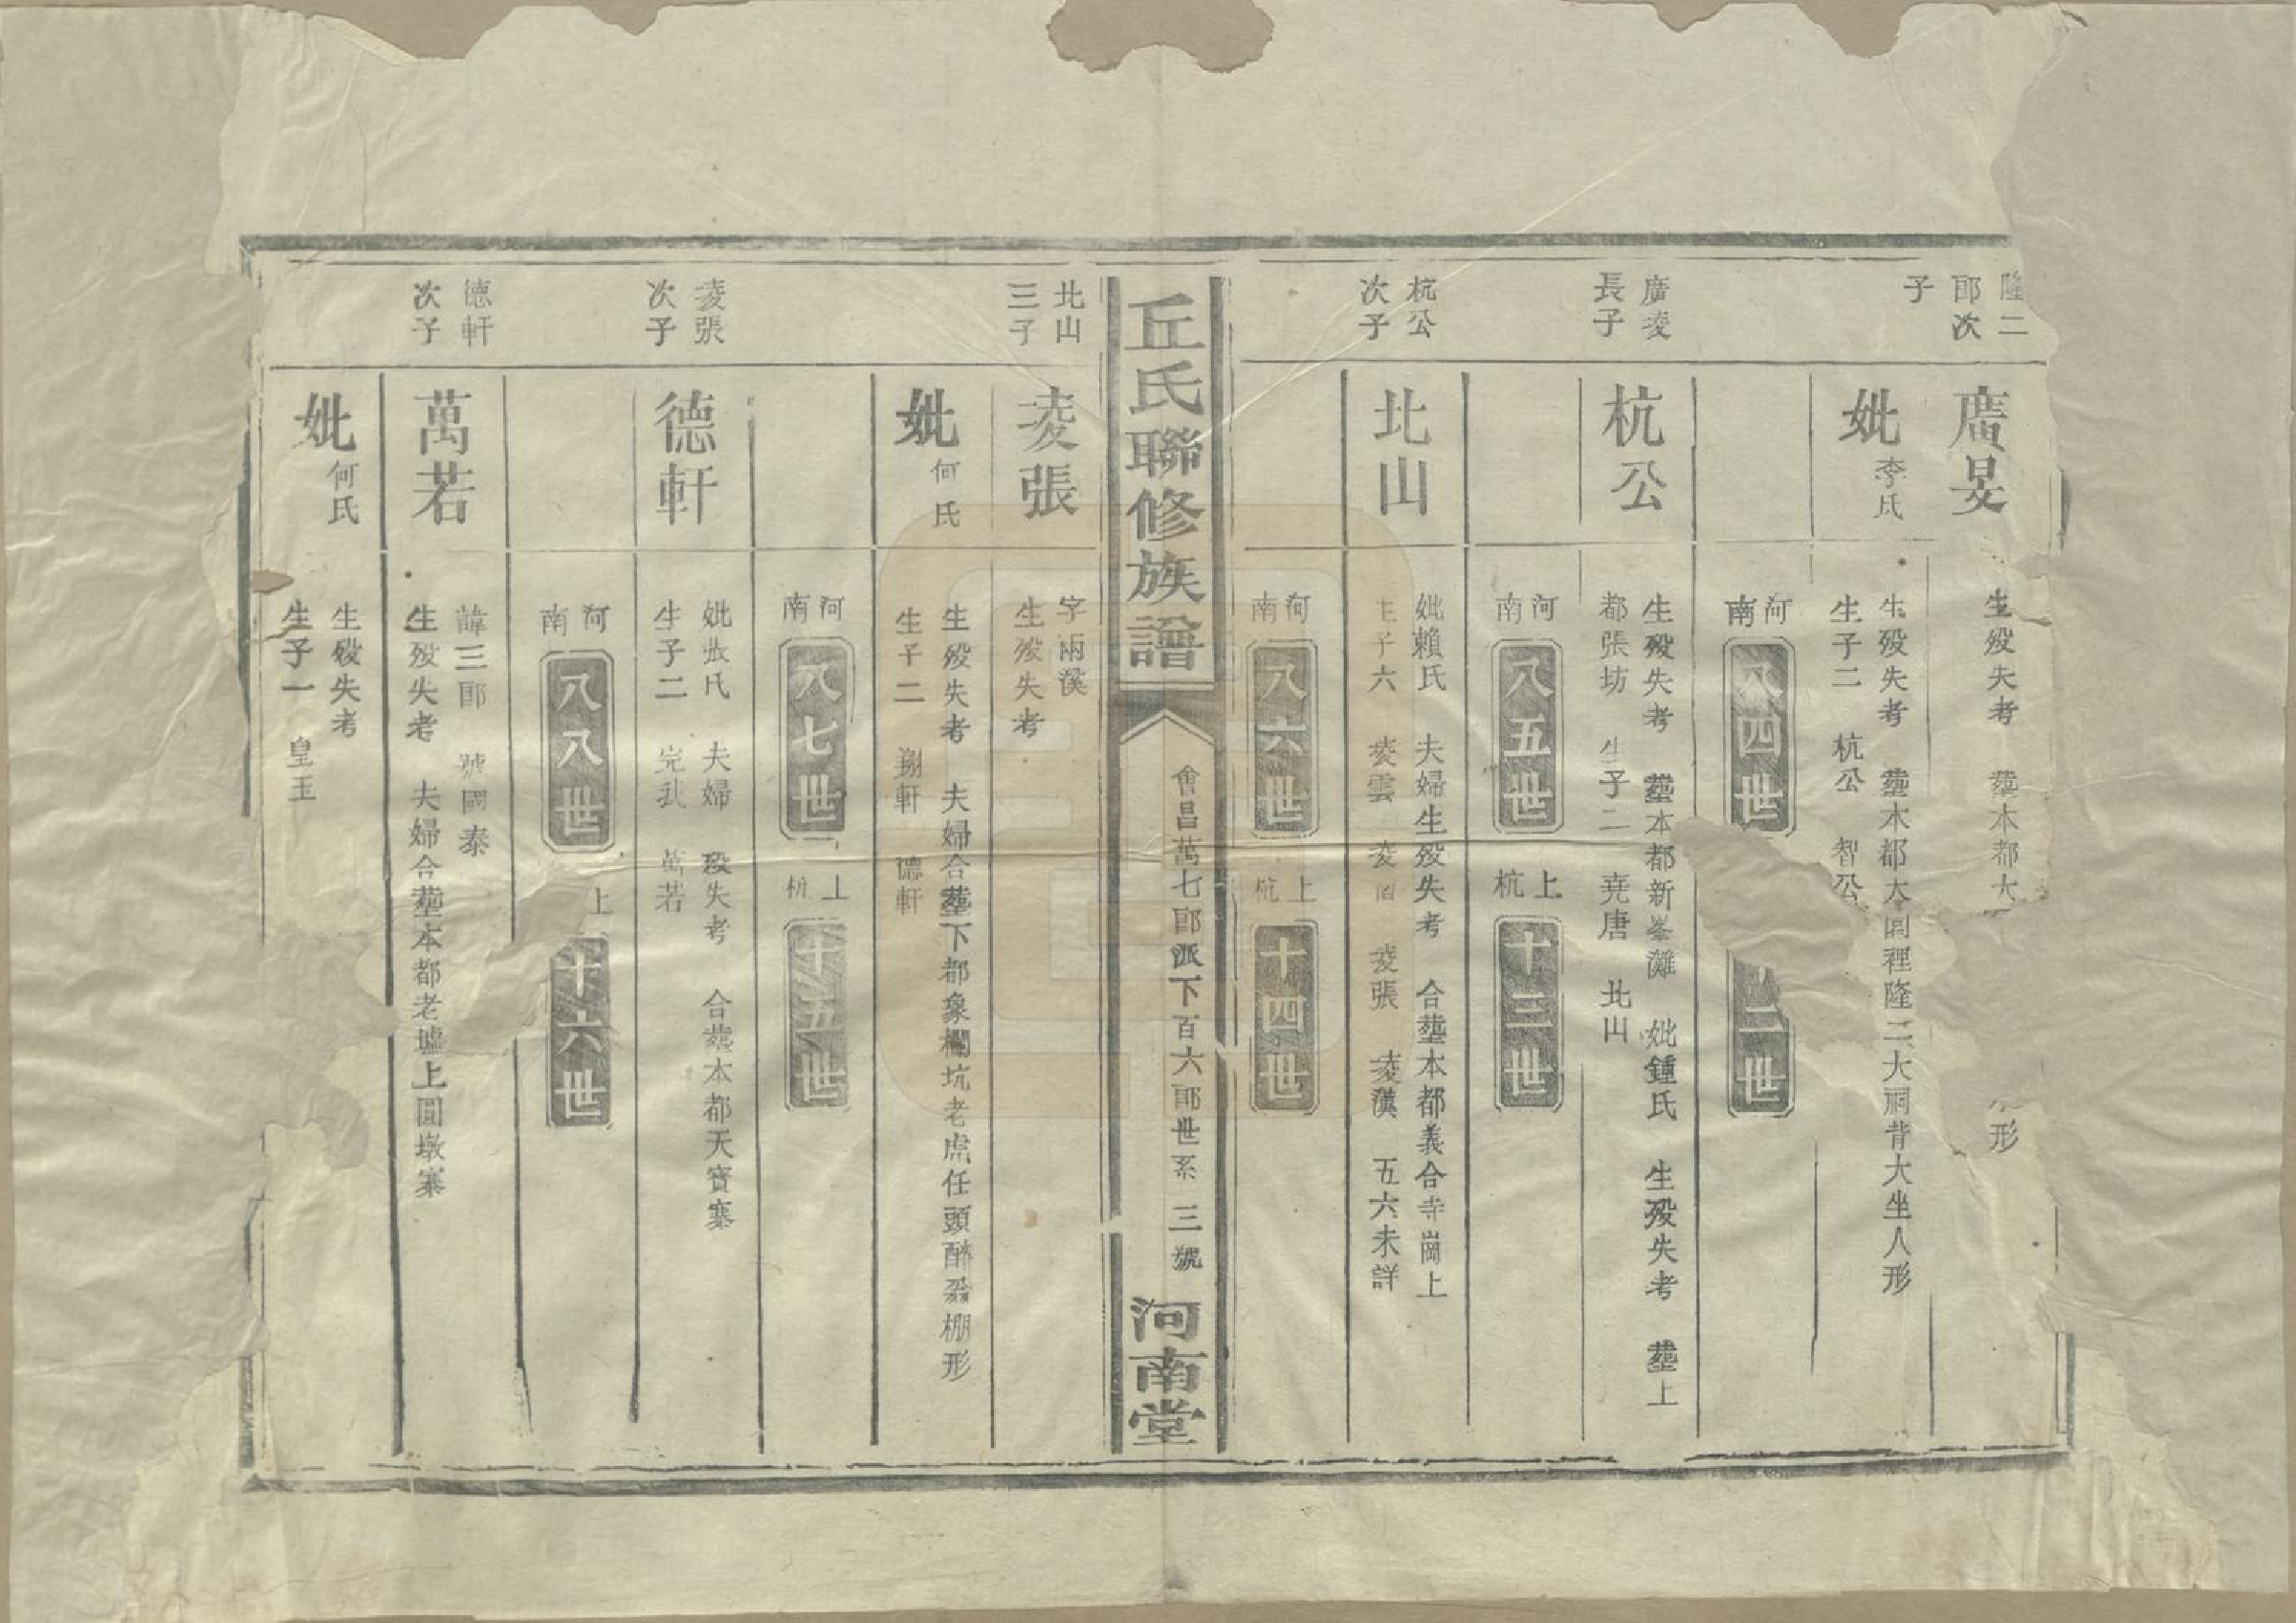 隆二
郎次
子
廣旻
生殁失考 塟本都大
形
妣李氏
生殁失考 塟本都大園裡隆二大祠背大坐人形
生子二 杭公 智公
河南
八四世
二世
廣凌
長子
杭公
生殁失考 塟本都新峯灘 妣鍾氏 生殁失考 塟上
都張坊 生子二 堯唐 北山
河南
八五世
上杭
十三世
杭公
次子
北山
妣賴氏 夫婦生殁失考 合塟本都義合寺崗上
生子六 凌雲 凌 凌張 凌漢 五六未詳
河南
八六世
上杭
十四世
丘氏聯修族譜
會昌萬七郎派下百六郎世系 三號
河南堂
北山
三子
凌張
字兩溪
生殁失考
妣何氏
生殁失考 夫婦合塟下都象欄坑老虎任頭醉翁棚形
生子二 翔軒 德軒
河南
八七世
上杭
十五世
凌張
次子
德軒
妣張氏 夫婦 殁失考 合塟本都天寶寨
生子二 完我 萬若
河南
八八世
上
十六世
德軒
次子
萬若
諱三郎 號國泰
生殁失考 夫婦合塟本都老墟上圓墩寨
妣何氏
生殁失考
生子一 皇玉